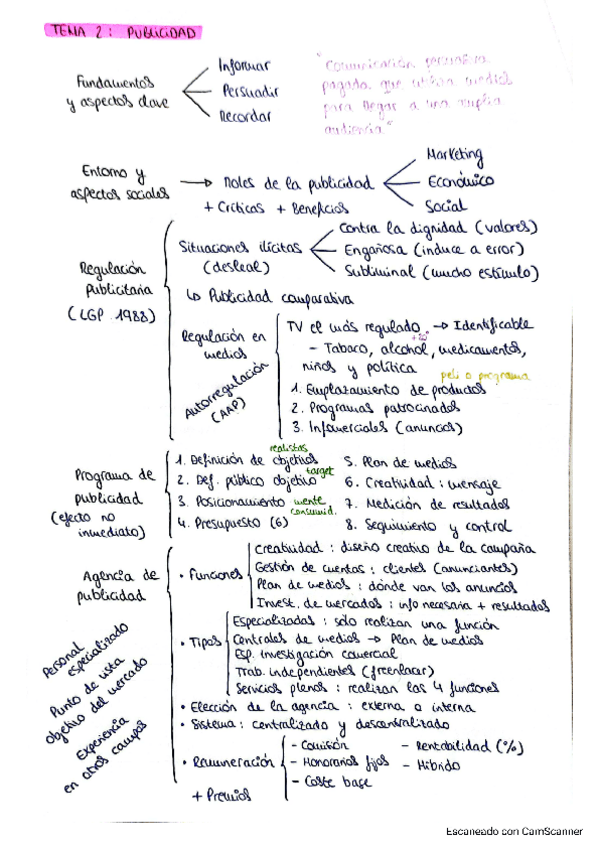 TEMA 2: PUBLICIDAD
Fundamentos
y aspectos clave
Informar
Persuadir
Recordar
"Comunicación persuasiva
pagada que utiliza medios
para llegar a una amplia
audiencia"
Entorno y
aspectos sociales
→ Roles de la publicidad
+ Críticas + Beneficios
Marketing
Económico
Social
Regulación
Publicitaria
(LGP 1988)
Situaciones ilícitas
(desleal)
Contra la dignidad (valores)
Engañosa (induce a error)
Subliminal (mucho estímulo)
↳ Publicidad comparativa
Regulación en
medios
Autorregulación
(AAP)
TV el más regulado → Identificable
- Tabaco, alcohol, medicamentos,
niños y política
peli o programa
1. Emplazamiento de productos
2. Programas patrocinados
3. Infomerciales (anuncios)
Programa de
publicidad
(efecto no
inmediato)
realistas
1. Definición de objetivos
2. Def. público objetivo target
3. Posicionamiento mente
consumid.
4. Presupuesto (6)
5. Plan de medios
6. Creatividad: mensaje
7. Medición de resultados
8. Seguimiento y control
Agencia de
publicidad
Personal
especializado
Punto de vista
objetivo del mercado
Experiencia
en otros campos
• Funciones
Creatividad: diseño creativo de la campaña
Gestión de cuentas: clientes (anunciantes)
Plan de medios: dónde van los anuncios
Invest. de mercados: info necesaria + resultados
• Tipos
Especializadas: sólo realizan una función
Centrales de medios → Plan de medios
Esp. Investigación comercial
Trab. independientes (freelancer)
Servicios plenos: realizan las 4 funciones
• Elección de la agencia: externa o interna
• Sistema: centralizado y descentralizado
• Remuneración
- Comisión
- Honorarios fijos
- Coste base
- Rentabilidad (%)
- Híbrido
+ Premios
Escaneado con CamScanner